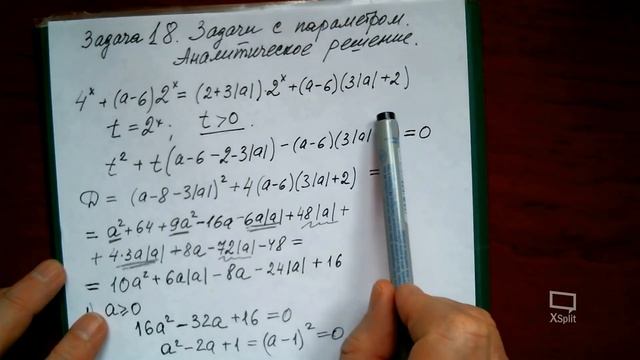 Задача 18. Задачи с параметром.
Аналитическое решение.
4ˣ + (a-6)2ˣ = (2+3|a|)·2ˣ + (a-6)(3|a|+2)
t = 2ˣ; t>0.
t² + t(a-6-2-3|a|) - (a-6)(3|a| = 0
D = (a-8-3|a|)² + 4(a-6)(3|a|+2) =
= a² + 64 + 9a² - 16a - 6a|a| + 48|a| +
+ 4·3a|a| + 8a - 72|a| - 48 =
= 10a² + 6a|a| - 8a - 24|a| + 16
a≥0
16a² - 32a + 16 = 0
a² - 2a + 1 = (a-1)² = 0
XSplit